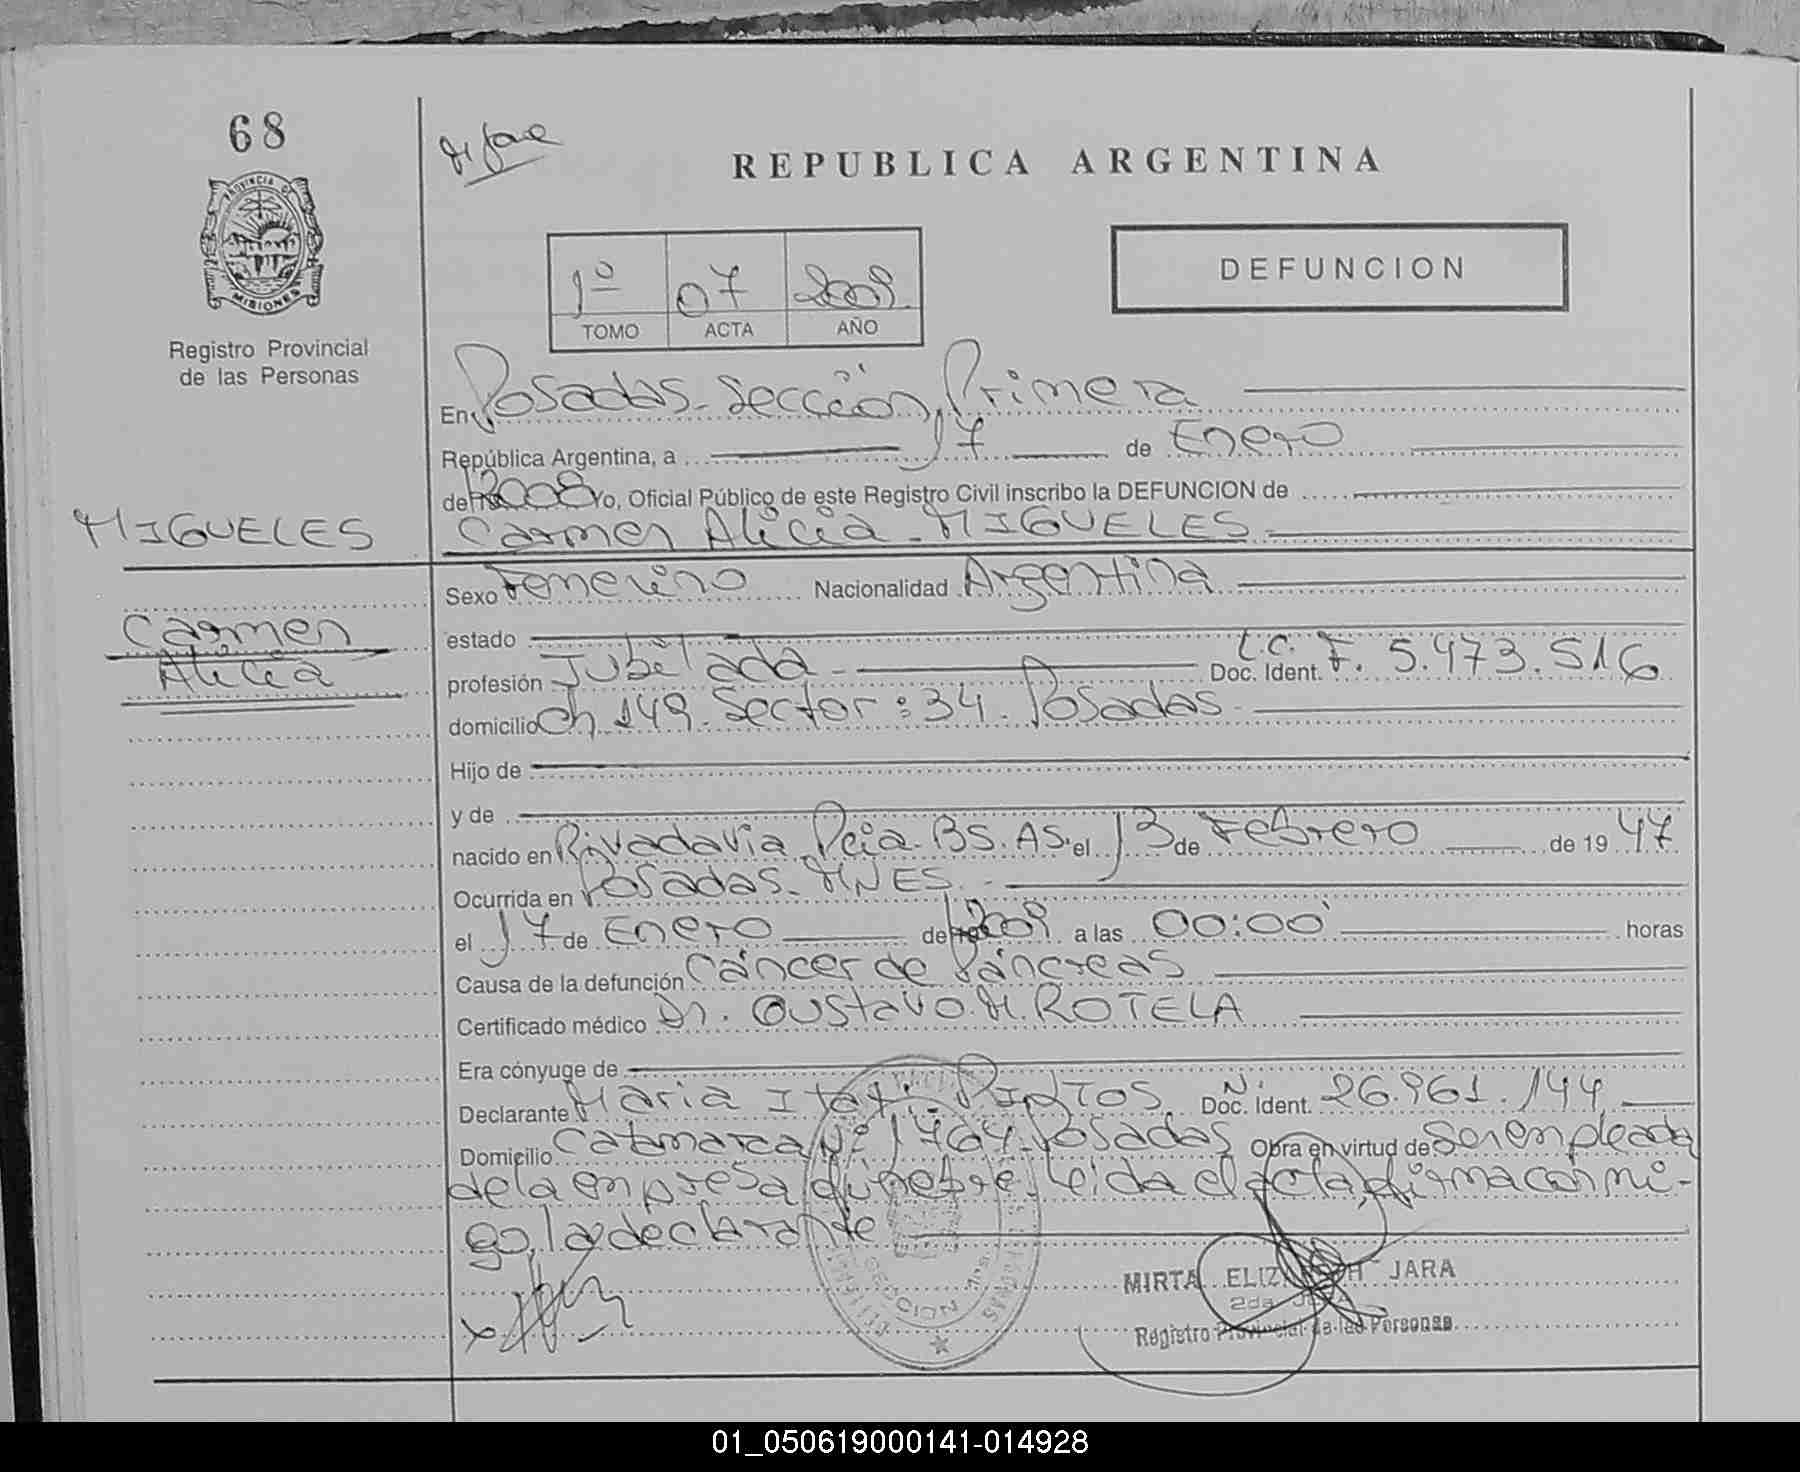 68
PROVINCIA DE
MISIONES
Registro Provincial
de las Personas
REPUBLICA ARGENTINA
1º 07 2008
TOMO ACTA AÑO
DEFUNCION
En Posadas - Sección Primera
República Argentina, a 17 de Enero
de 2008 Yo, Oficial Público de este Registro Civil inscribo la DEFUNCION de
MIGUELES
Carmen Alicia - MIGUELES
Carmen
Alicia
Sexo Femenino Nacionalidad Argentina
estado
profesión Jubilada Doc. Ident. L.C. F. 5.473.516
domicilio Ch 149. Sector: 34. Posadas
Hijo de
y de
nacido en Rivadavia Pcia. BS. AS. el 13 de Febrero de 19 47
Ocurrida en Posadas - MNES.
el 17 de Enero de 2008 a las 00:00 horas
Causa de la defunción Cáncer de Páncreas
Certificado médico Dr. Gustavo M. ROTELA
Era cónyuge de
Declarante Maria Itati PINTOS Doc. Ident. N: 26.961.144
Domicilio Catamarca Nº 1764 Posadas Obra en virtud de Ser empleada
de la empresa fúnebre. Leida el acta, firma conmi-
go, la declarante
MIRTA ELIZABETH JARA
2da JEFA
Registro Provincial de las Personas
01_050619000141-014928